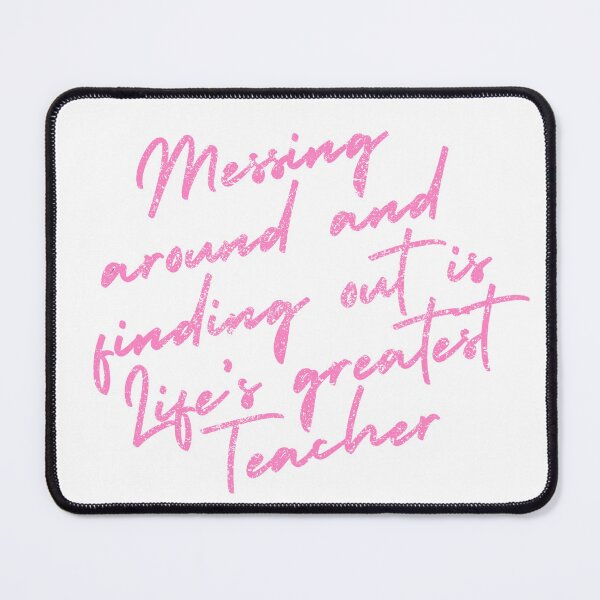 Messing
around and
finding out is
Life's greatest
Teacher